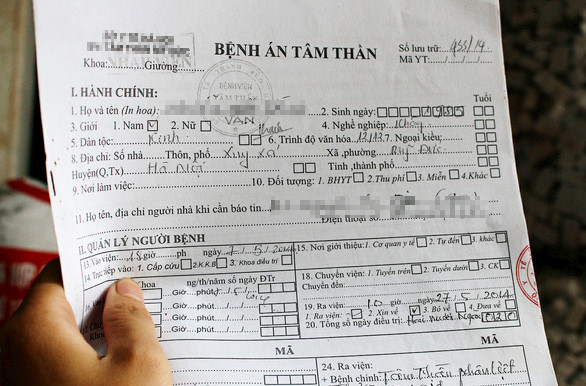 BỆNH ÁN TÂM THẦN
Khoa: Giường:
Số lưu trữ: 955/14
Mã YT:
BỆNH VIỆN
I. HÀNH CHÍNH:
1. Họ và tên (In hoa): 2. Sinh ngày: Tuổi
3. Giới 1. Nam 2. Nữ 4. Nghề nghiệp:
5. Dân tộc: Kinh 6. Trình độ văn hóa: 12/12 7. Ngoại kiều:
8. Địa chỉ: Số nhà Thôn, phố Xã, phường: Mỹ Đức
Huyện(Q.Tx) Hà Nội Tỉnh, thành phố
9. Nơi làm việc: 10. Đối tượng: 1. BHYT 2. Thu phí 3. Miễn 4. Khác
11. Họ tên, địa chỉ người nhà khi cần báo tin
Điện thoại số
II. QUẢN LÝ NGƯỜI BỆNH
13. Vào viện: giờ ph ngày 5/2014
14. Trực tiếp vào: 1. Cấp cứu 2. K.K.B 3. Khoa điều trị
Khoa ng/th/năm số ngày ĐTr
Giờ phút
Giờ phút
Giờ phút
15. Nơi giới thiệu: 1. Cơ quan y tế 2. Tự đến 3. khác
18. Chuyển viện: 1. Tuyến trên 2. Tuyến dưới 3. CK
Chuyển đến:
19. Ra viện: 10 giờ ngày 27/5/2014
1. Ra viện: 2. Xin về 3. Bỏ về 4. Đưa về
20. Tổng số ngày điều trị: Hai mươi ngày 020
MÃ MÃ
24. Ra viện:
+ Bệnh chính: Tâm thần phân liệt